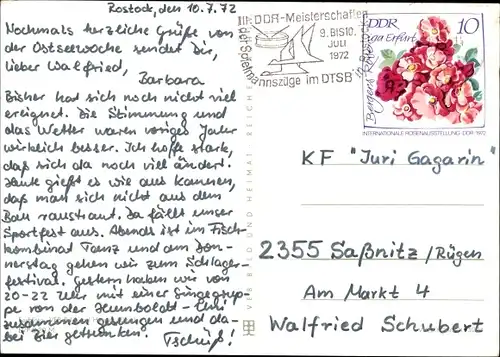 Rostock, den 10.7.72
Nochmals herzliche Grüße von
der Ostseewoche sendet Dir,
lieber Walfried,
Barbara
Bisher hat sich noch nicht viel
ereignet. Die Stimmung und
das Wetter waren voriges Jahr
wirklich besser. Ich hoffe stark,
daß sich da noch viel ändert.
Heute gießt es wie aus Kannen,
daß man sich nicht aus dem
Bau raustraut. Da fällt unser
Sportfest aus. Abends ist im Fisch-
kombinat Tanz und am Don-
nerstag gehen wir zum Schlager-
festival. Gestern haben wir von
20-22 Uhr mit einer Singegrup-
pe von der Humboldt-Uni
zusammen gesungen und da-
bei Bier getrunken.
Tschüß!
III. DDR-Meisterschaften
der Spielmannszüge im DTSB in Rostock
9. BIS 10.
JULI
1972
DDR 10
iga Erfurt
Bergers Rose
INTERNATIONALE ROSENAUSSTELLUNG DDR 1972
VEB BILD UND HEIMAT REICHENBACH
KF "Juri Gagarin"
2355 Saßnitz/Rügen
Am Markt 4
Walfried Schubert